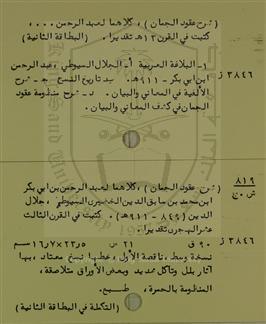 (شرح عقود الجمان) ، كلاهما لعبد الرحمن ....
كتبت في القرن ١٣هـ تقديرا . (البطاقة الثانية)
٣٨٤٦ ز
١- البلاغة العربية أ- الجلال السيوطي ، عبد الرحمن
ابن أبي بكر - ٩١١هـ . ب- تاريخ النسخ جـ - شرح
الألفية في المعاني والبيان . د - شرح منظومة عقود
الجمان في كشف المعاني والبيان .
٨١٩
(شرح عقود الجمان) ، كلاهما لعبد الرحمن بن أبي بكر
ابن محمد بن سابق الدين الخضيري السيوطي ، جلال
الدين (٨٤٩ - ٩١١هـ) . كتبت في القرن الثالث
عشر الهجري تقديرا .
٣٨٤٦ ز
٩٠ ق ٢١ س ٢٣٫٥×١٦٫٧ سم
نسخة وسط ، ناقصة الأول ، خطها نسخ معتاد ، بها
آثار بلل وتآكل مديد وبعض الأوراق متلاصقة ،
المنظومة بالحمرة ، طبع .
(التكملة في البطاقة الثانية)